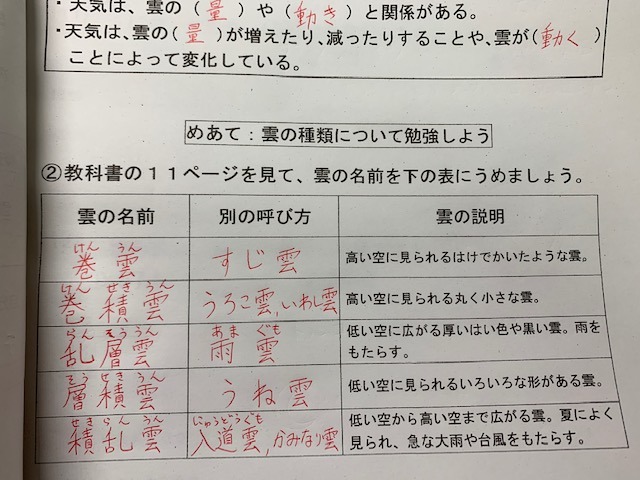 ・天気は、雲の（量）や（動き）と関係がある。
・天気は、雲の（量）が増えたり、減ったりすることや、雲が（動く）
ことによって変化している。
めあて：雲の種類について勉強しよう
②教科書の１１ページを見て、雲の名前を下の表にうめましょう。
雲の名前 別の呼び方 雲の説明
けん うん
巻雲 すじ雲 高い空に見られるはけでかいたような雲。
けん せき うん
巻積雲 うろこ雲,いわし雲 高い空に見られる丸く小さな雲。
らん そう うん あま ぐも
乱層雲 雨雲 低い空に広がる厚いはい色や黒い雲。雨を
もたらす。
そう せき うん
層積雲 うね雲 低い空に見られるいろいろな形がある雲。
せき らん うん にゅうどうぐも
積乱雲 入道雲,かみなり雲 低い空から高い空まで広がる雲。夏によく
見られ、急な大雨や台風をもたらす。